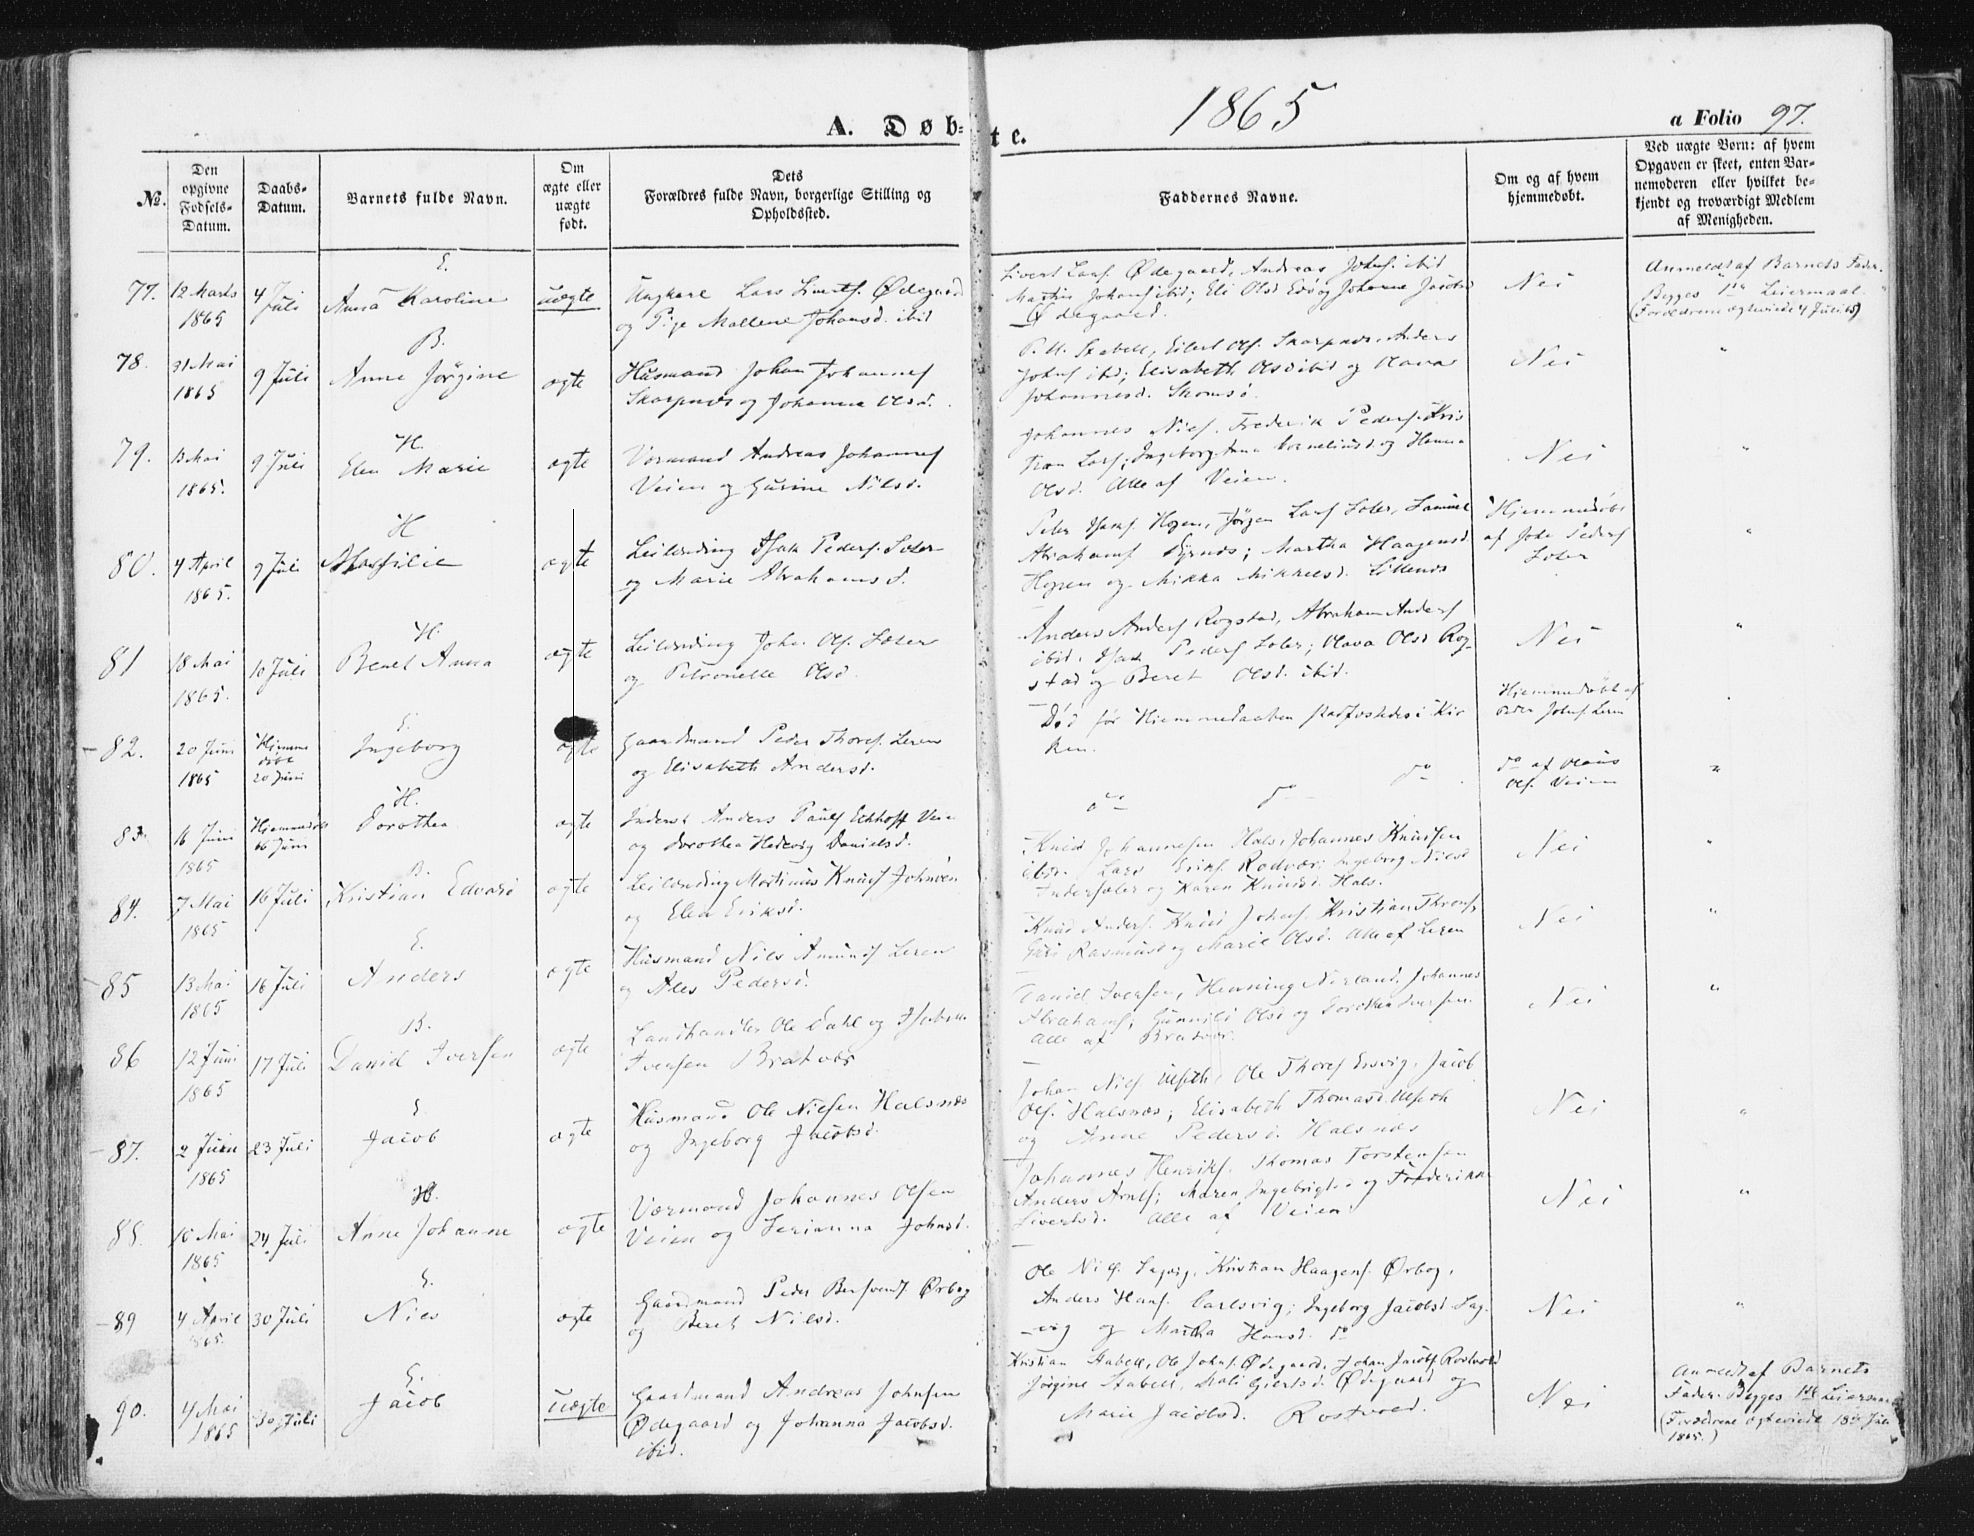 1865
A. Døbte.
a Folio 97.
No.
Den opgivne Fødsels-Datum.
Daabs-Datum.
Barnets fulde Navn.
Om ægte eller uægte født.
Dets Forældres fulde Navn, borgerlige Stilling og Opholdssted.
Faddernes Navne.
Om og af hvem hjemmedøbt.
Ved uægte Børn: af hvem Opgaven er skeet, enten Barnemoderen eller hvilket bekjendt og troværdigt Medlem af Menigheden.
77. 12 Marts 1865 4 Juli E. Anna Karoline uægte
Ungkarl Lars Øðegaard
og Pige Mallene Johansd. ibid
Sivert Larsf. Ødegaard, Andreas Johnsf. ibid
Martin Johansf ibid; Eli Olsd og Johanna Jacobsd
Ødegaard.
Nei
Anmeldt af Barnets Fader.
Begges 1ste Leiermaal.
(Forældrene ægteviede 4 Juli 65)
78. 31 Mai 1865 9 Juli B. Anne Jørgine ægte
Husmand Johan Johannesf
Skarpnæs og Johanna Olsd.
P. U. Stabell, Eilert Olsf. Skarpnæs, Anders
Johnsf ibid; Elisabeth Olsd ibid og Olava
Johannesd. Skomsø.
Nei "
79. 13 Mai 1865. 9 Juli H. Elen Marie ægte
Vormand Andreas Johannesf
Veien og Gurine Nilsd.
Johannes Nielsf. Frederik Pedersf. Kris
Larsf; Ingeborg Anna Korneliusd og Hanna
Olsd. Alle af Veien.
Nei "
80. 4 April 1865. 9 Juli H ægte
Leilending Isak Pedersf. Soter
og Marie Abrahamsd.
Peter Isaksf. Hopen, Jørgen Larsf Soter, Samuel
Abrahamsf; Martha Haagensd.
Hopen og Mikka Mikkelsd.
Hjemmedøbt
af John Pedersf
Soter
"
81 18 Mai 1865. 10 Juli H. Beret Anna ægte
Leilending John Olsf. Soter
og Petronelle Olsd.
Anders Andersf Rogstad, Abraham Andersf
ibid. Isak Pedersf Soter; Olava Olsd Rog-
stad og Beret Olsd. ibid.
Nei "
82. 20 Juni 1865 Hjemme døbt 20 Juni E. Ingeborg ægte
Gaardmand Peder Thoresf. Leren
og Elisabeth Andersd.
Død før Hjemmedaaben stadfæstedes i Kir
ken.
Hjemmedøbt af
Peder Johnsf Leren
83. 16 Juni 1865 Hjemmedøbt 16 Juni H. Dorothea ægte
Inderst Anders Paulsf Ekhoff Veien
og Dorothea Hedevig Danielsd.
do do do
do af Olaus
Olsf. Veien
"
84. 7 Mai 1865 16 Juli B. Kristian Edvard ægte
Leilending Mortinus Knudsf Johnven
og Elen Eriksd.
Knud Johannesen Hals, Johannes Knudsen
ibid. Lars Eriksf. Rodvær; Ingeborg Nilsd
og Karen Knudsd. Hals.
Nei "
85 13 Mai 1865 16 Juli E. Anders ægte
Husmand Nils Amundsf Leren
og Ales Pedersd.
Knud Andersf. Knud Johnsf. Kristian Thronsf,
Guri Rasmusd og Marie Olsd. Alle af Leren
Nei "
86 12 Juni 1865 17 Juli B. Daniel Iversen ægte
Landhandler Ole Dahl og
Iversen Bratvær
Daniel Iversen, Henning Norland, Johannes
Abrahamsf; Gunnild Olsd og Dorothea Iversen.
Alle af Bratvær.
Nei "
87. 2 Juni 1865 23 Juli E. Jacob ægte
Husmand Ole Nielsen Halsnæs
og Ingeborg Jacobsd.
Johan Nielsf Ulseth, Ole Thoresf Ersvig, Jacob
Olsf. Halsnæs; Elisabeth Thomasd Ulseth
og Anne Pedersd. Halsnæs
Nei "
88. 10 Mai 1865 24 Juli H. Anne Johanne ægte
Vormand Johannes Olsen
Veien og Serianna Johnsd.
Johannes Henriksf. Thomas Torstensen
Anders Arntsf; Maren Ingebrigtsd og Frederikka
Sivertsd. Alle af Veien
Nei "
89 4 April 1865. 30 Juli E. Niels ægte
Gaardmand Peder Bersvendsf. Ørbog
og Beret Nilsd.
Ole Nilsf. Sagvig, Kristian Haagensf. Ørbog,
Anders Hansf. Carlsvig; Ingeborg Jacobsd Sag-
vig og Martha Hansd. do
Nei "
90. 4 Mai 1865 30 Juli E. Jacob uægte
Gaardmand Andreas Johnsen
Ødegaard og Johanna Jacobsd.
ibid.
Kristian Stabell, Ole Johnsf. Ødegaard, Johan Jacobsf. Rostvold
Jørgine Stabell, Mali Sjertsd. Ødegaard og
Marie Jacobsd. Rostvold.
Nei
Anmeldt af Barnets
Fader. Begges 1ste Leiermaal
(Forældrene ægteviede 18de Juli
1865.)